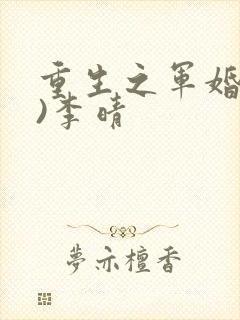 重生之军婚
)李晴
梦示檀香